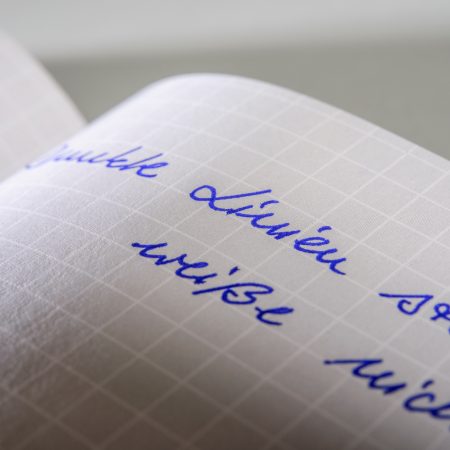 Dunkle Linien
weiße nic